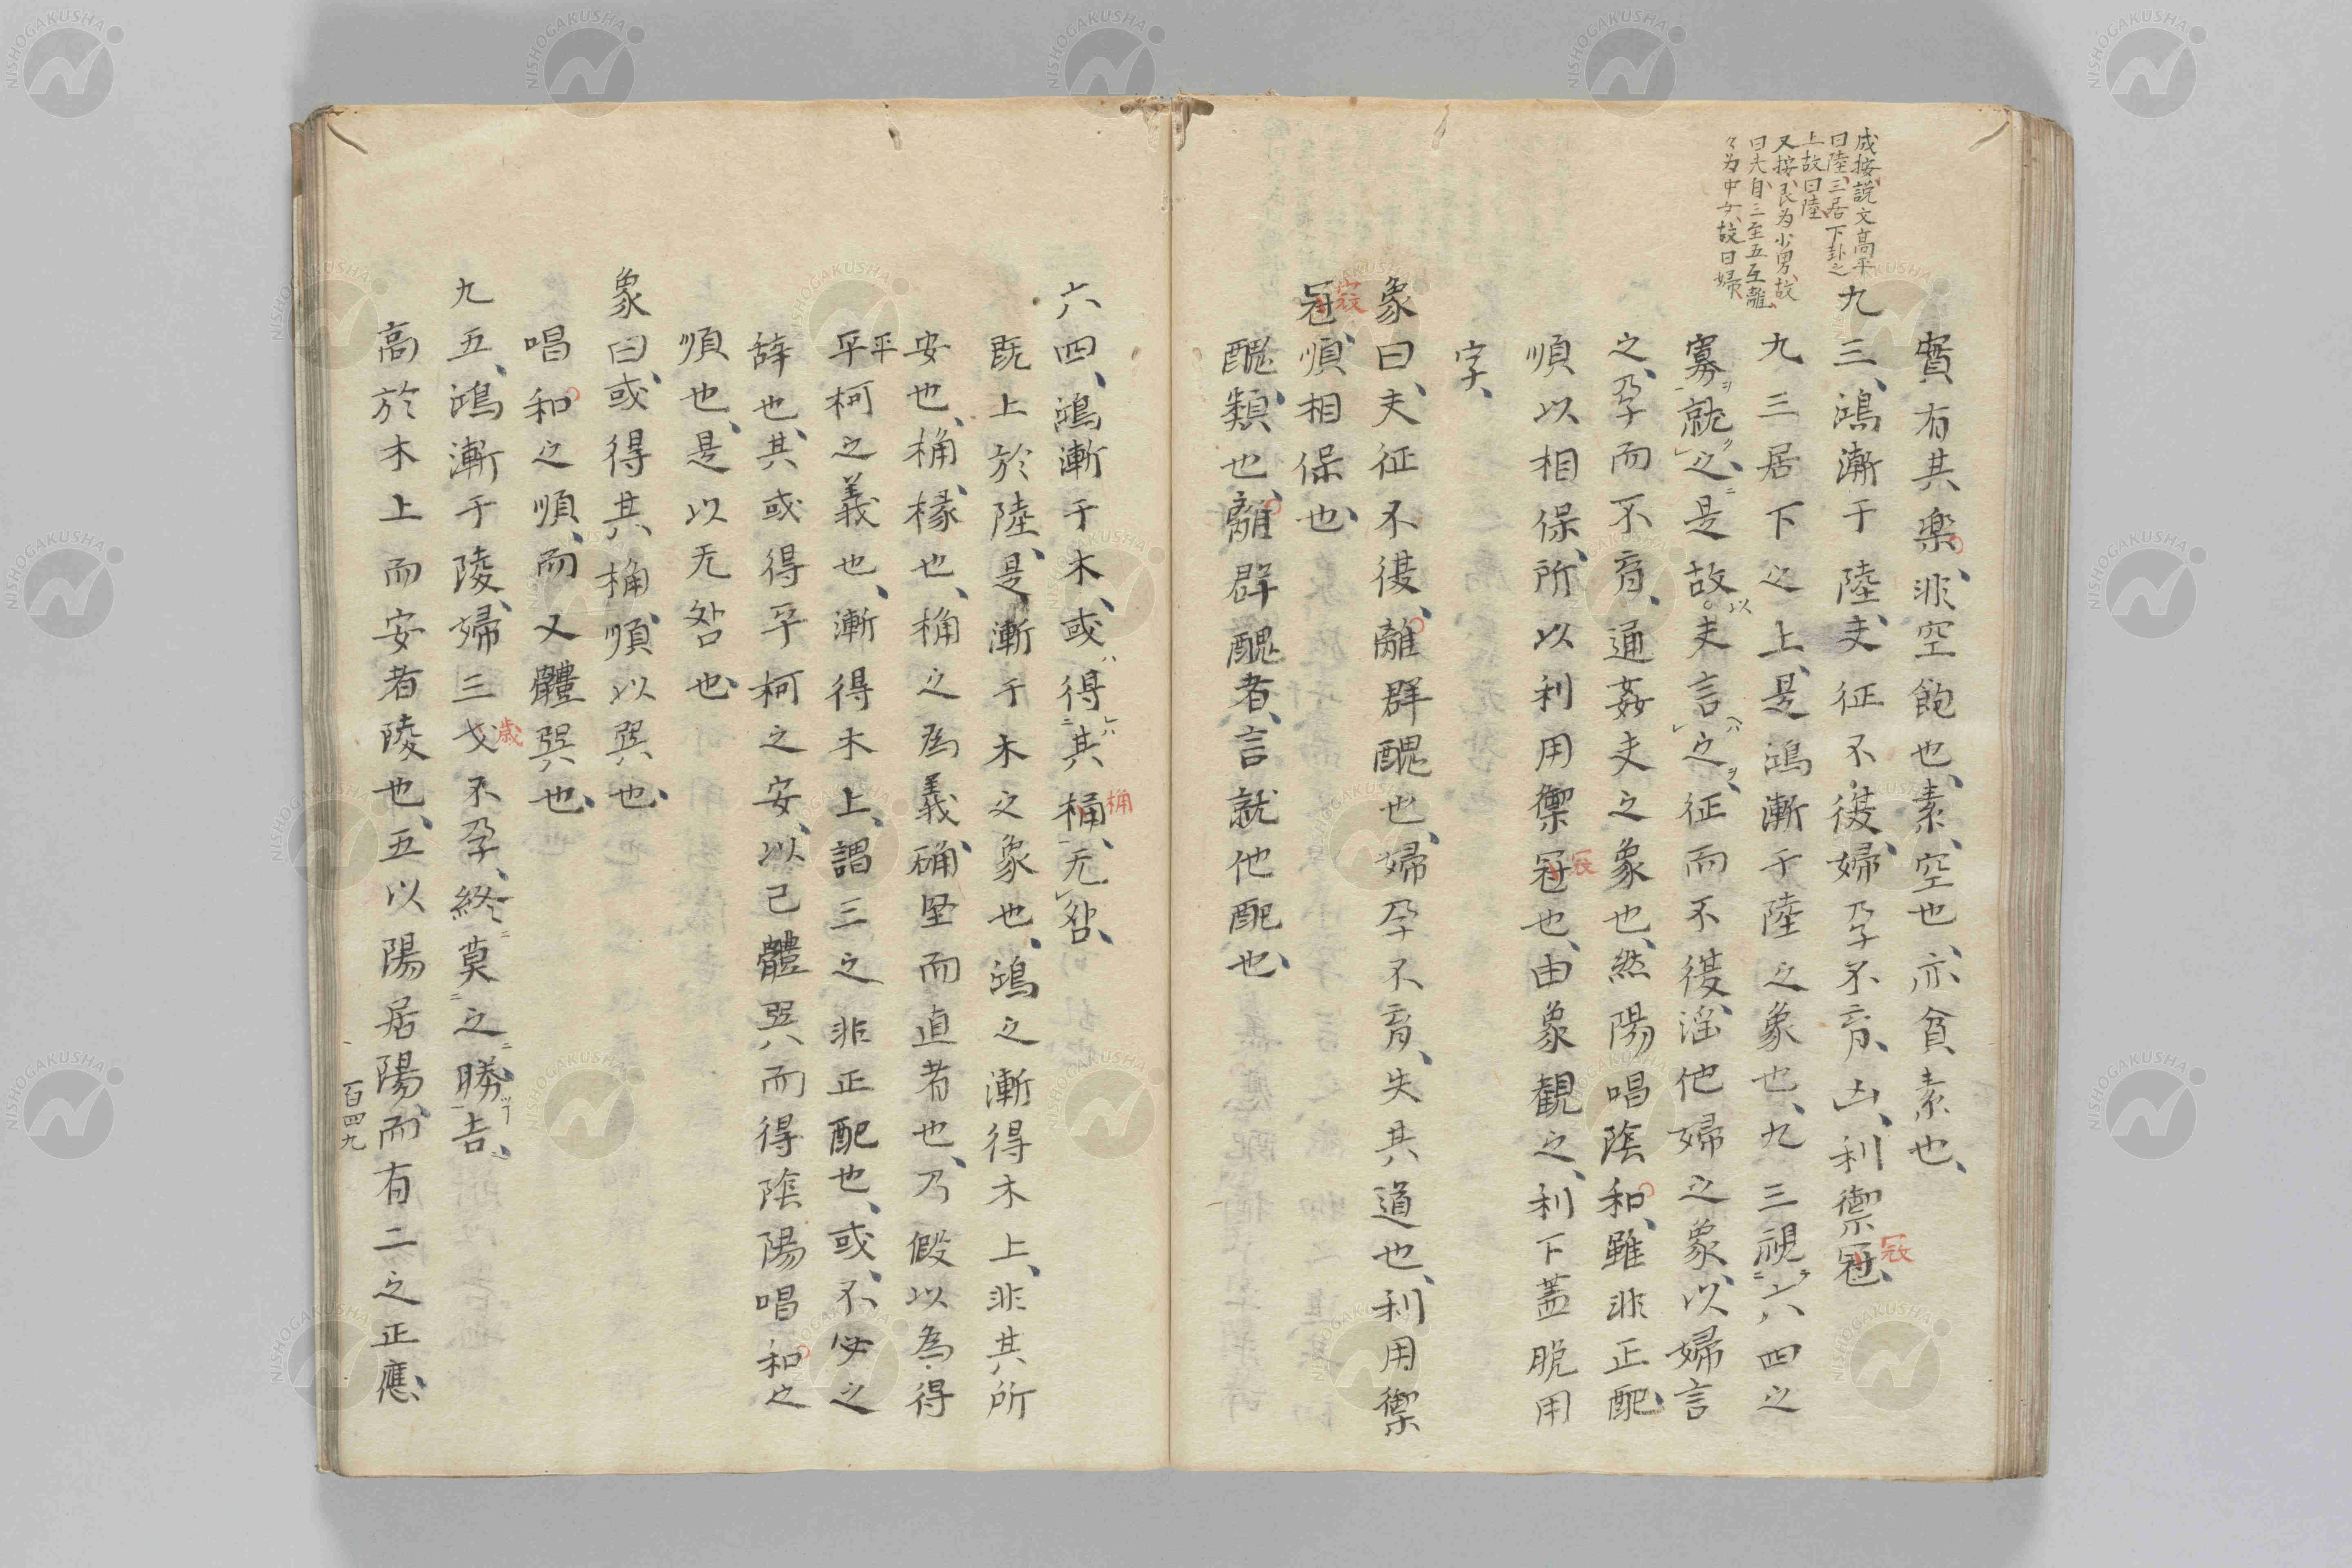 成按、説文高平
曰陸、三居下卦之
上故曰陸
又按、艮为少男、故
曰夫自三至五互離、
々为中女、故曰婦、
實有其楽、非空飽也、素、空也、亦貧素也、
九三、鴻漸于陸、夫征不復、婦孕不育、凶、利禦冦、
九三居下之上、是鴻漸于陸之象也、九三視六四之
寡就之、是故夫言之、征而不復、淫他婦之象、以婦言
之、孕而不育、通姦夫之象也、然陽唱陰和、雖非正配、
順以相保、所以利用禦冦也、由象觀之、利下蓋脱用
字、
象曰、夫征不復、離群醜也、婦孕不育、失其道也、利用禦
冦、順相保也、
醜、類也、離群醜者、言就他配也、
六四、鴻漸于木、或得其桷、无咎、
既上於陸、是漸于木之象也、鴻之漸得木上、非其所
安也、桷、椽也、桷之為義、确堅而直者也、乃假以為得
平柯之義也、漸得木上、謂三之非正配也、或、不安之
辞也、其或得平柯之安、以己體巽而得陰陽唱和之
順也、是以无咎也、
象曰、或得其桷、順以巽也、
唱和之順、而又體巽也、
九五、鴻漸于陵、婦三歳不孕、終莫之勝、吉、
高於木上而安者陵也、五以陽居陽、而有二之正應、
百四九